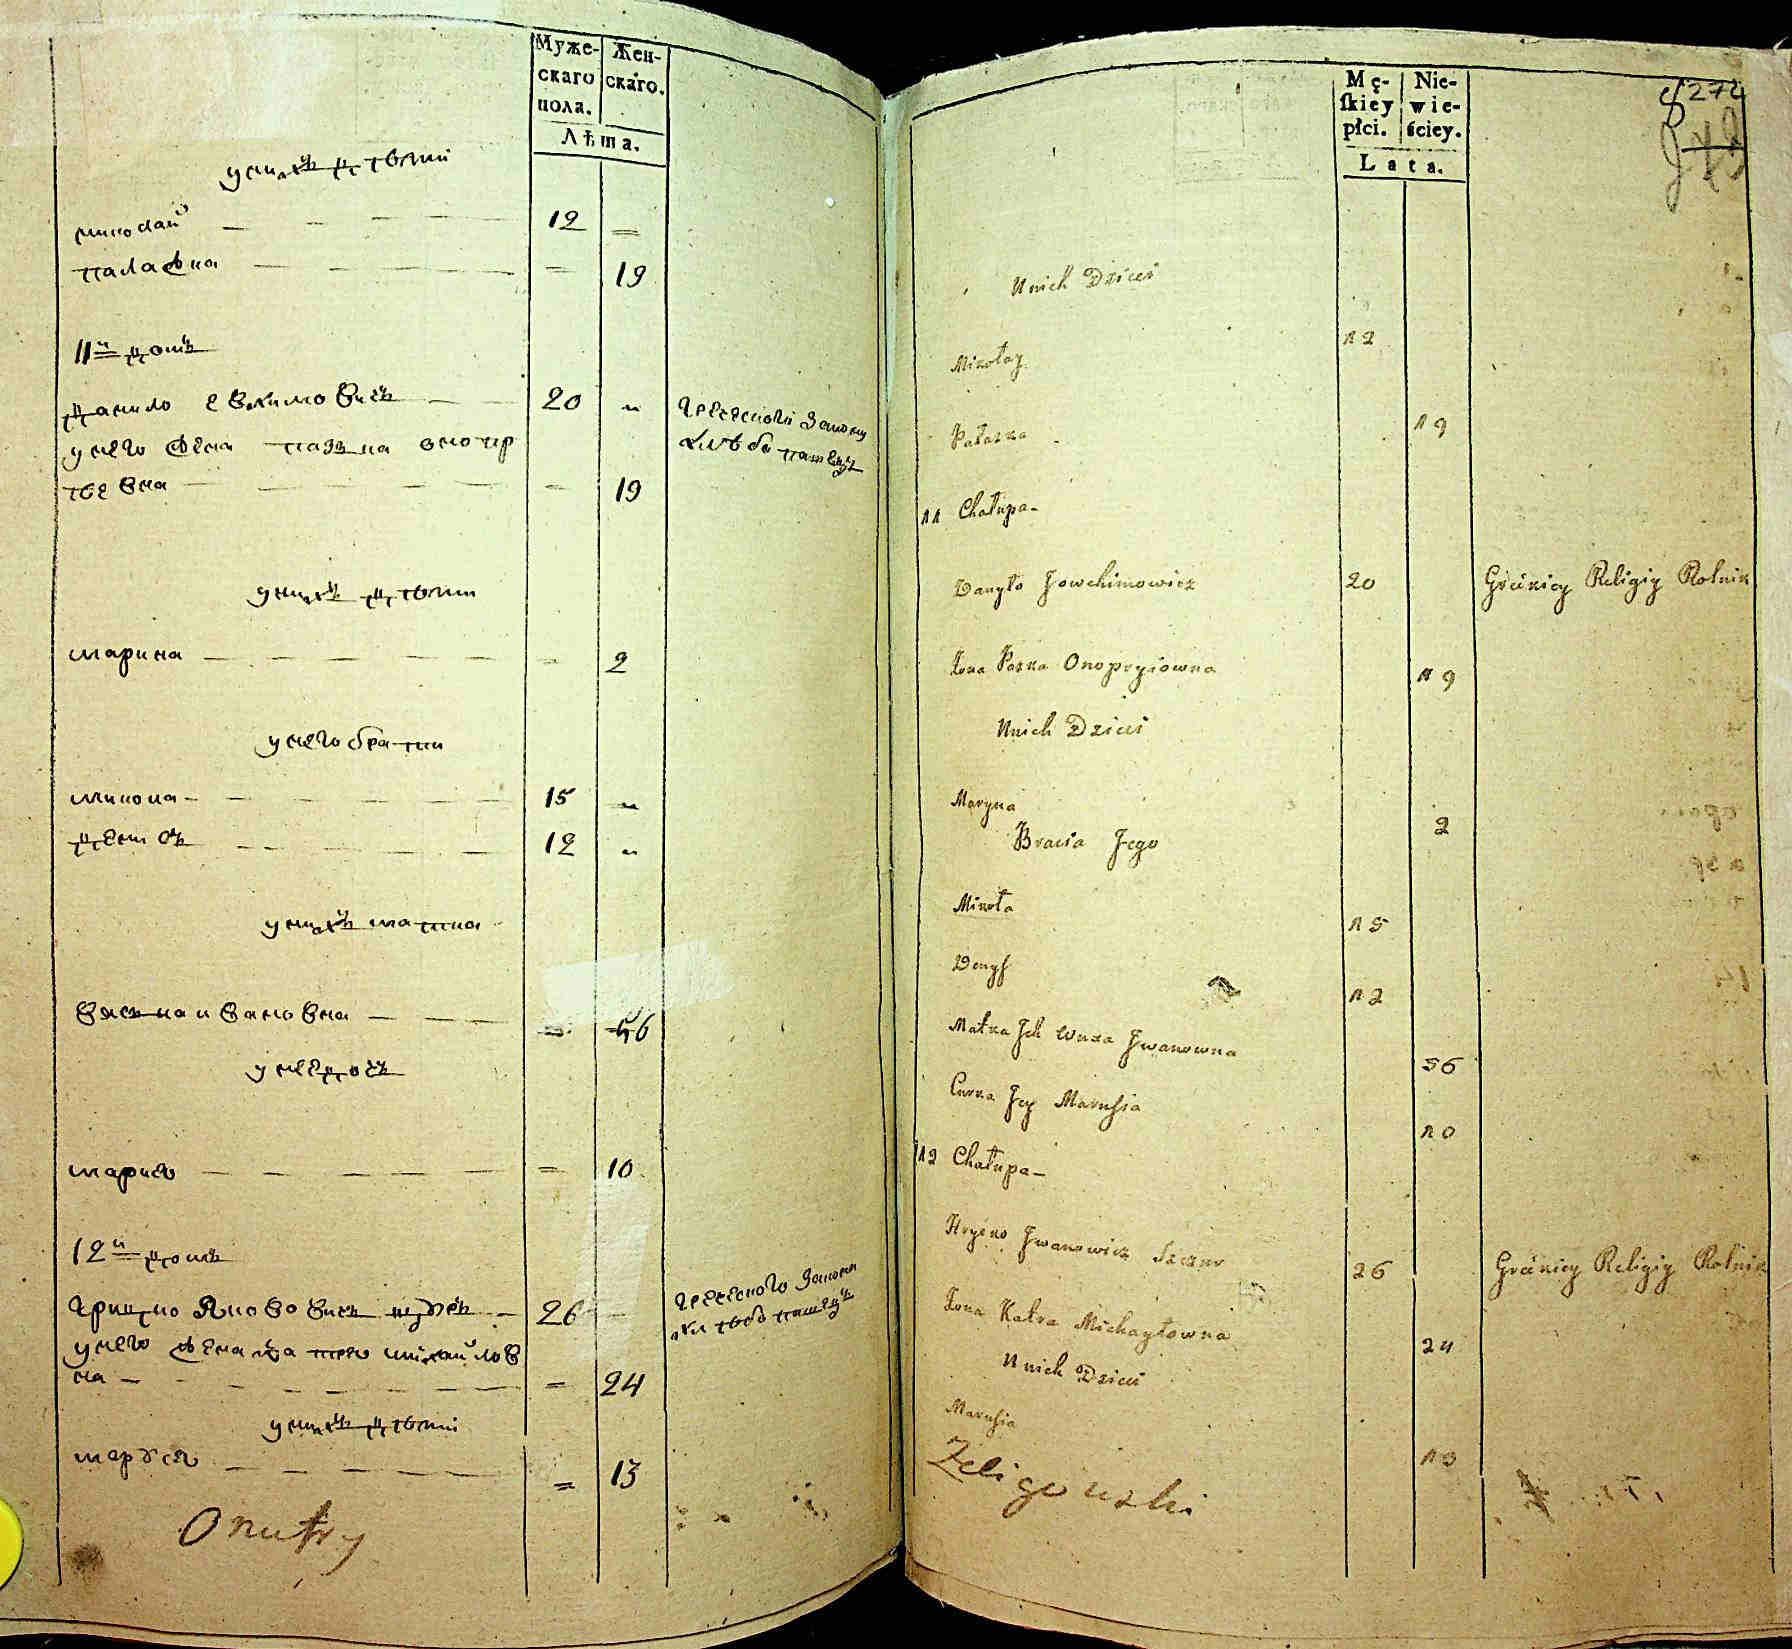 Муже- Жен-
скаго скаго.
пола.
Лѣта.
у нихъ дѣти
миколай 12
палажка 19
11й домъ
данило евхимовичъ 20 греческого закону
у него жена пазька онопр хлѣбопашецъ
іевна 19
у нихъ дѣти
марина 2
у него братии
микола 15
денисъ 12
у нихъ матка
васька ивановна 56
у нее дочь
марися 10
12й домъ
грицко 26 греческого закону
у него жена катря михайлов хлѣбопашецъ
на 24
у нихъ дѣти
маруся 13
Onufry
Mę- Nie-
ſkiey wie-
płci. ściey.
Lata.
272
U nich Dzieci
Mikołay 12
Pałaszka 19
11 Chałupa
Danyło Jowchimowicz 20 Gréckiey Religiy Rolnik
Żona Pazka Onopryiowna 19
U nich Dzieci
Maryna 2
Bracia Jego
Mikoła 15
Denyſ 12
Matka Jch Jwanowna 56
Curka Jey Maruſia 10
12 Chałupa
Hrycko Jwanowicz 26 Gréckiey Religiy Rolnik
Żona Katra Michayłowna 24
U nich Dzieci
Maruſia 13
Zeligowski